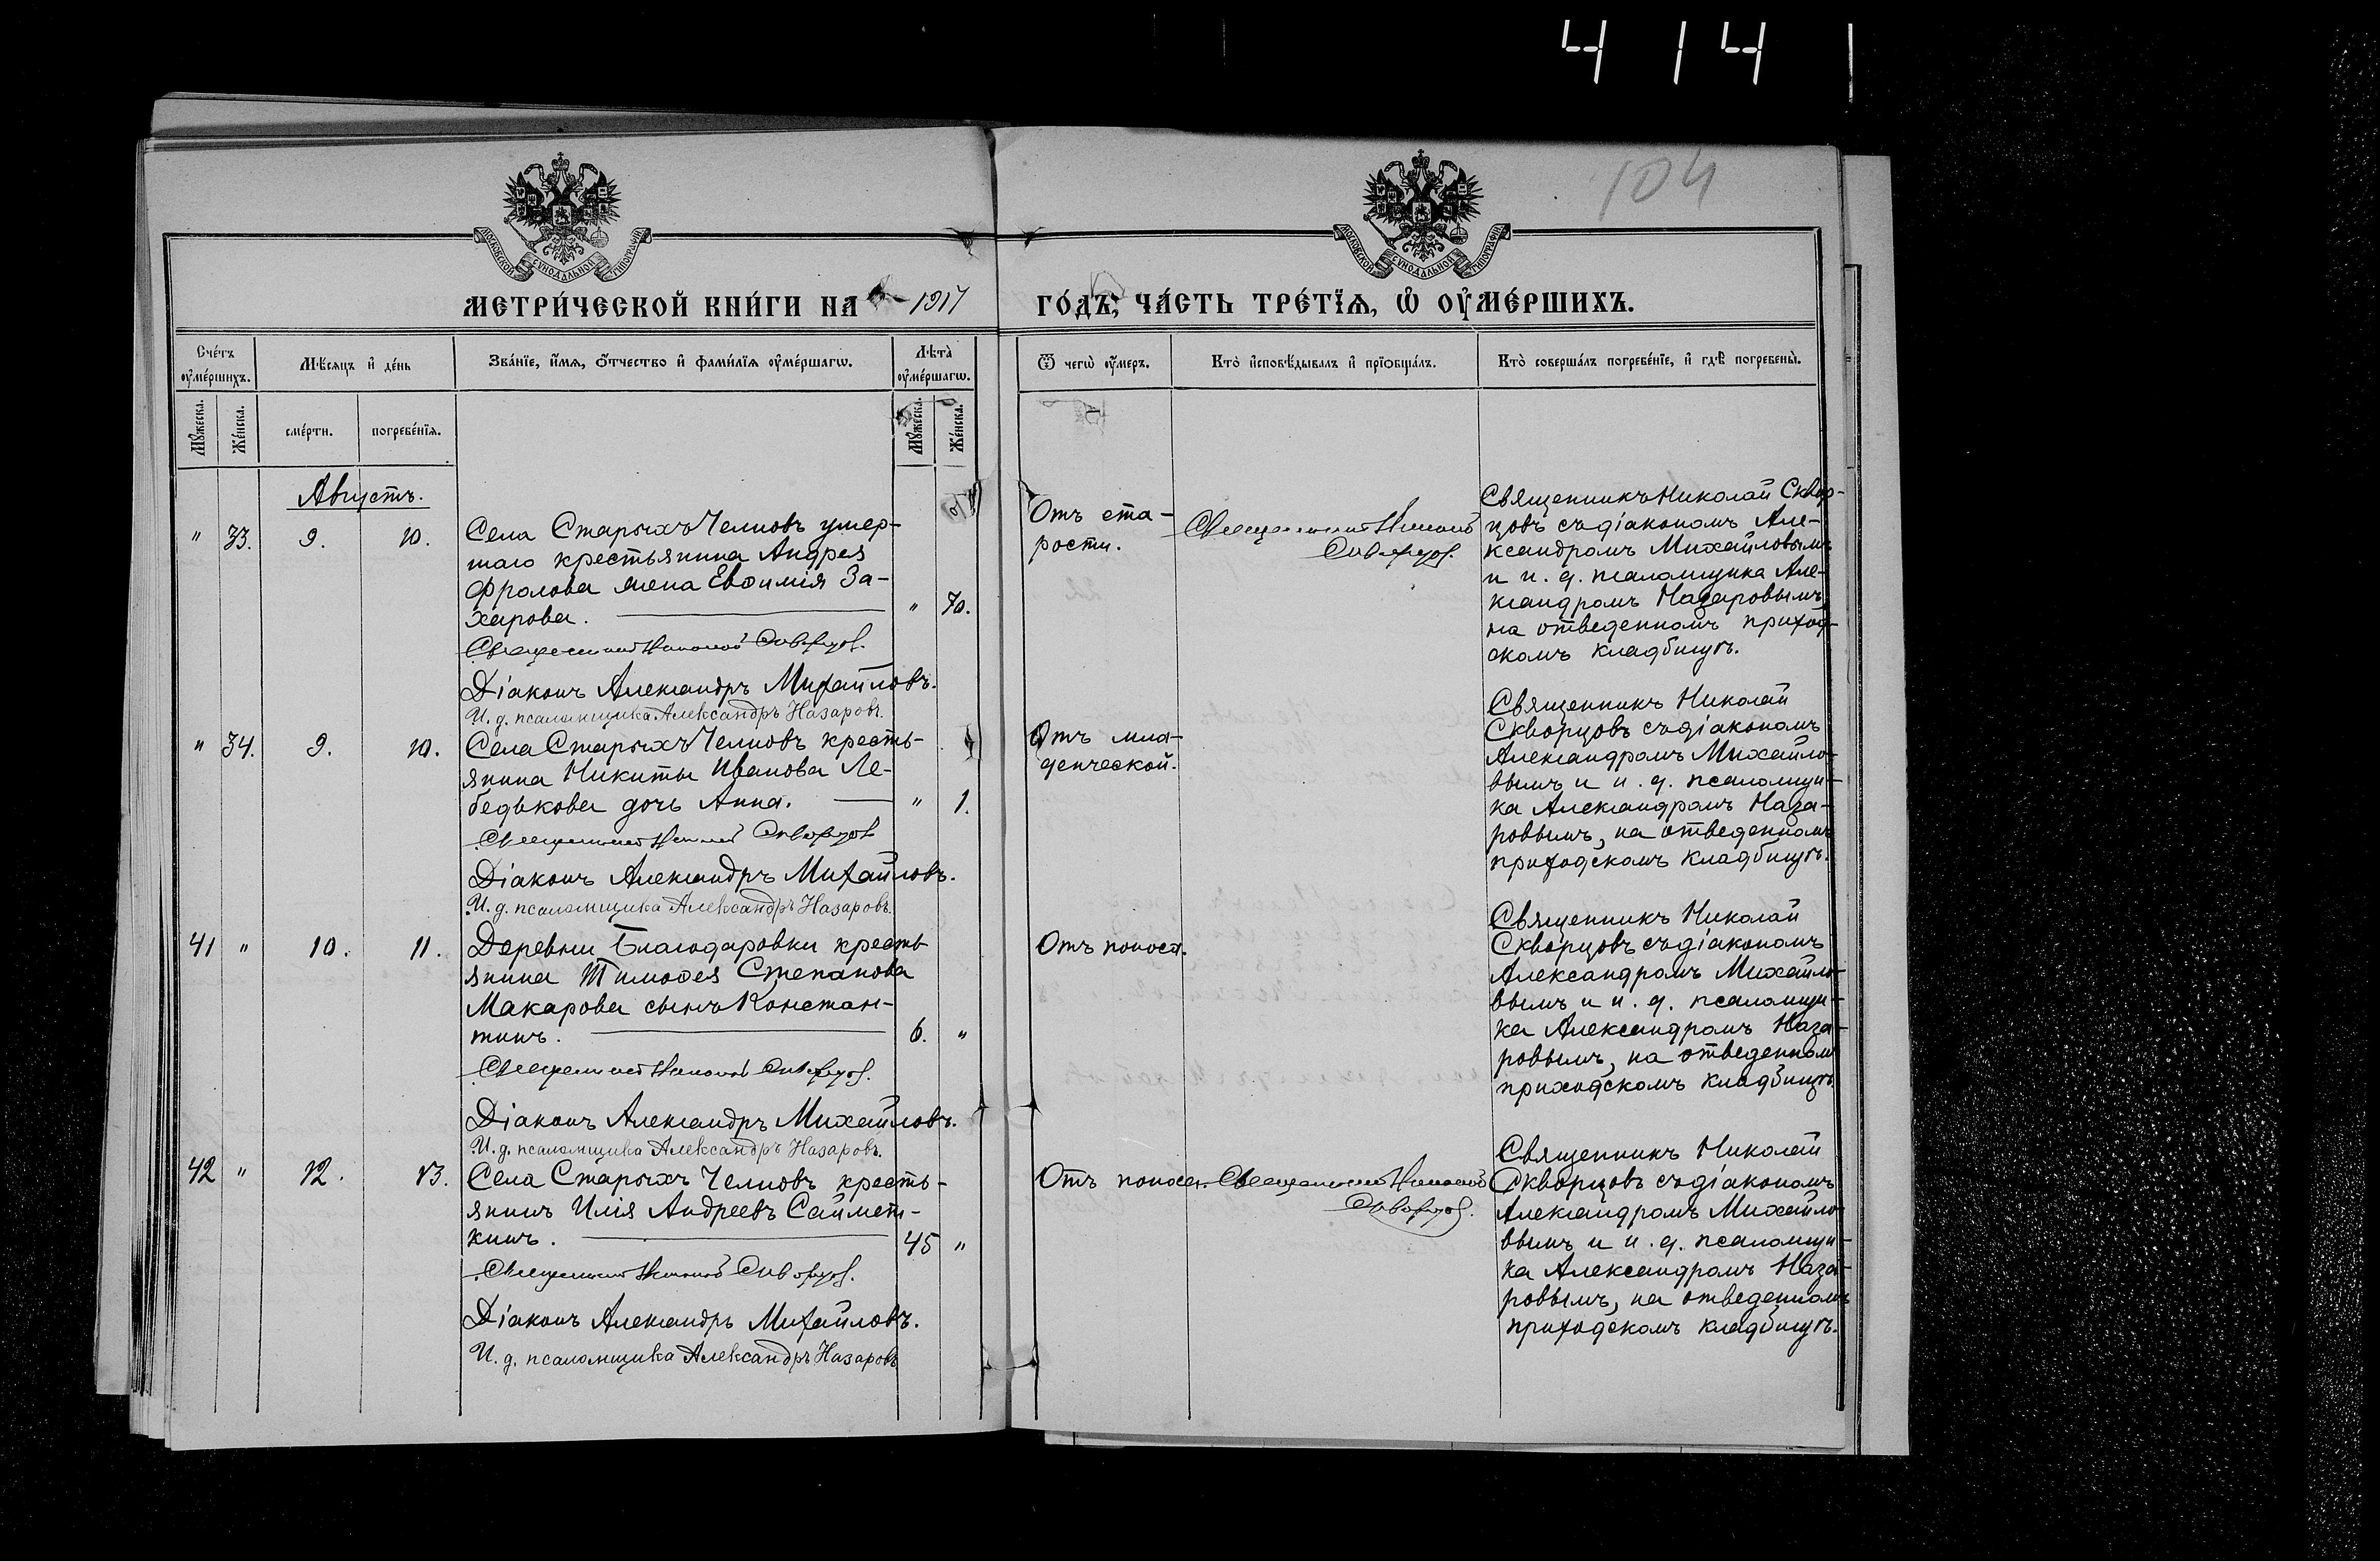 4 14
104
МОСКОВСКОЙ СѴНОДАЛЬНОЙ ТИПОГРАФІИ
МОСКОВСКОЙ СѴНОДАЛЬНОЙ ТИПОГРАФІИ
МЕТРИ́ЧЕСКОЙ КНИ́ГИ НА 1917
ГО́ДЪ, ЧА́СТЬ ТРЕ́ТЇѦ, Ѡ҆ ОУ҆МЕ́РШИХЪ.
Сче́тъ оу҆ме́ршихъ.
Мѣ́сяцъ и҆ де́нь
Зва́нїе, и҆́мя, ѻ҆́тчество и҆ фами́лїя оу҆ме́ршагѡ.
Лѣта̀ оу҆ме́ршагѡ.
Ѿ чегѡ̀ оу҆́меръ.
Кто̀ и҆сповѣ́дывалъ и҆ прїѻбща́лъ.
Кто̀ соверша́лъ погребе́нїе, и҆ гдѣ̀ погребены̀.
Мꙋ́жеска.
Же́нска.
сме́рти.
погребе́нїя.
Мꙋ́жеска.
Же́нска.
Августъ.
" 33. 9. 10.
Села Старыхъ Челновъ умер-
шаго крестьянина Андрея
Фролова жена Евѳимія За-
харова. " 70.
Священникъ Николай Скворцов.
Діаконъ Александръ Михайловъ.
И. д. псаломщика Александръ Назаровъ.
Отъ ста-
рости.
Священникъ Николай
Скворцов.
Священникъ Николай Сквор-
цовъ съ діакономъ Але-
ксандромъ Михайловымъ
и и. д. псаломщика Але-
ксандромъ Назаровымъ,
на отведенномъ приход-
скомъ кладбищѣ.
" 34. 9. 10.
Села Старыхъ Челновъ кресть-
янина Никиты Иванова Ле-
бедькова дочь Анна. " 1.
Священникъ Николай Скворцов
Діаконъ Александръ Михайловъ.
И. д. псаломщика Александръ Назаровъ.
Отъ мла-
денческой.
Священникъ Николай
Скворцовъ съ діакономъ
Александромъ Михайло-
вымъ и и. д. псаломщи-
ка Александромъ Наза-
ровымъ, на отведенномъ
приходскомъ кладбищѣ.
41 " 10. 11.
Деревни Благодаровки кресть
янина Тимоѳея Степанова
Макарова сынъ Констан-
тинъ. 6. "
Священникъ Николай Скворцов.
Діаконъ Александръ Михайловъ.
И. д. псаломщика Александръ Назаровъ.
Отъ поноса.
Священникъ Николай
Скворцовъ съ діакономъ
Александромъ Михайло-
вымъ и и. д. псаломщи-
ка Александромъ Наза-
ровымъ, на отведенном
приходскомъ кладбищѣ
42 " 12. 13.
Села Старыхъ Челновъ кресть-
янинъ Илія Андреевъ Саймет-
кинъ. 45 "
Священникъ Николай Скворцов.
Діаконъ Александръ Михайловъ.
И. д. псаломщика Александръ Назаровъ
Отъ поноса.
Священникъ Николай
Скворцов.
Священникъ Николай
Скворцовъ съ діакономъ
Александромъ Михайло-
вымъ и и. д. псаломщи-
ка Александромъ Наза-
ровымъ, на отведенномъ
приходскомъ кладбищѣ.